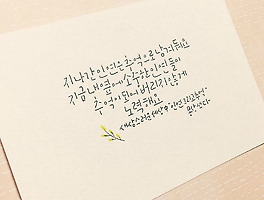 지나간 인연은 추억으로 남겨둬요
지금 내 곁에 소중한 인연들이
추억이 되어버리지 않게
노력해요